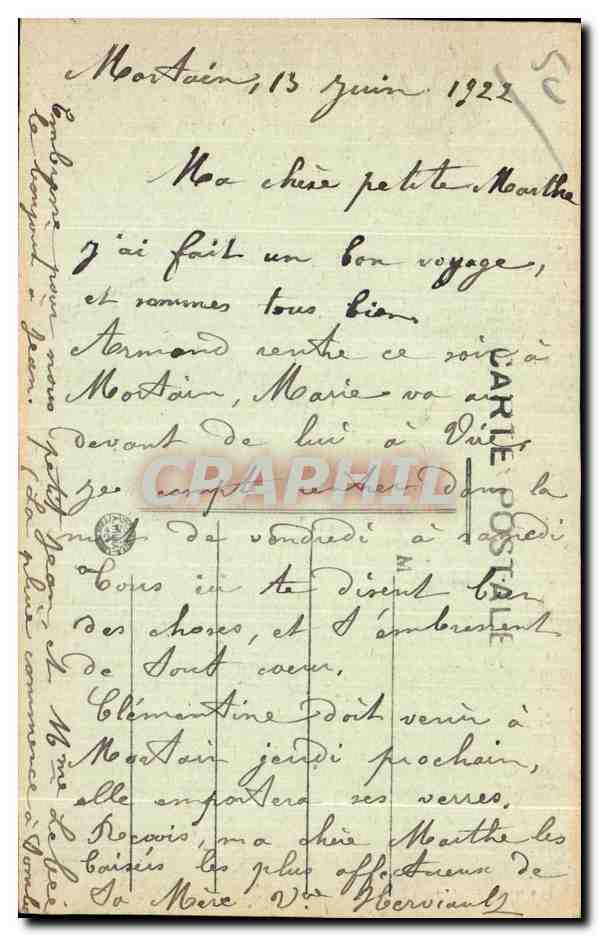 Mortain, 13 Juin 1922
50
Ma chère petite Marthe
J'ai fait un bon voyage,
et sommes tous bien,
Armand rentre ce soir à
Mortain, Marie va au
devant de lui à Vire,
je compte rentrer dans la
nuit de vendredi à samedi
Tous ici te disent bien
des choses, et t'embrassent
de tout cœur.
Clémentine doit venir à
Mortain jeudi prochain,
elle emportera ses verres.
Reçois, ma chère Marthe les
baisers les plus affectueux de
ta Mère Vve Herviault
Embrasse pour nous petit Jean et Mme
le bonjour à Jean. (La pluie commence à tomber
CARTE POSTALE
M
CRAPHIL